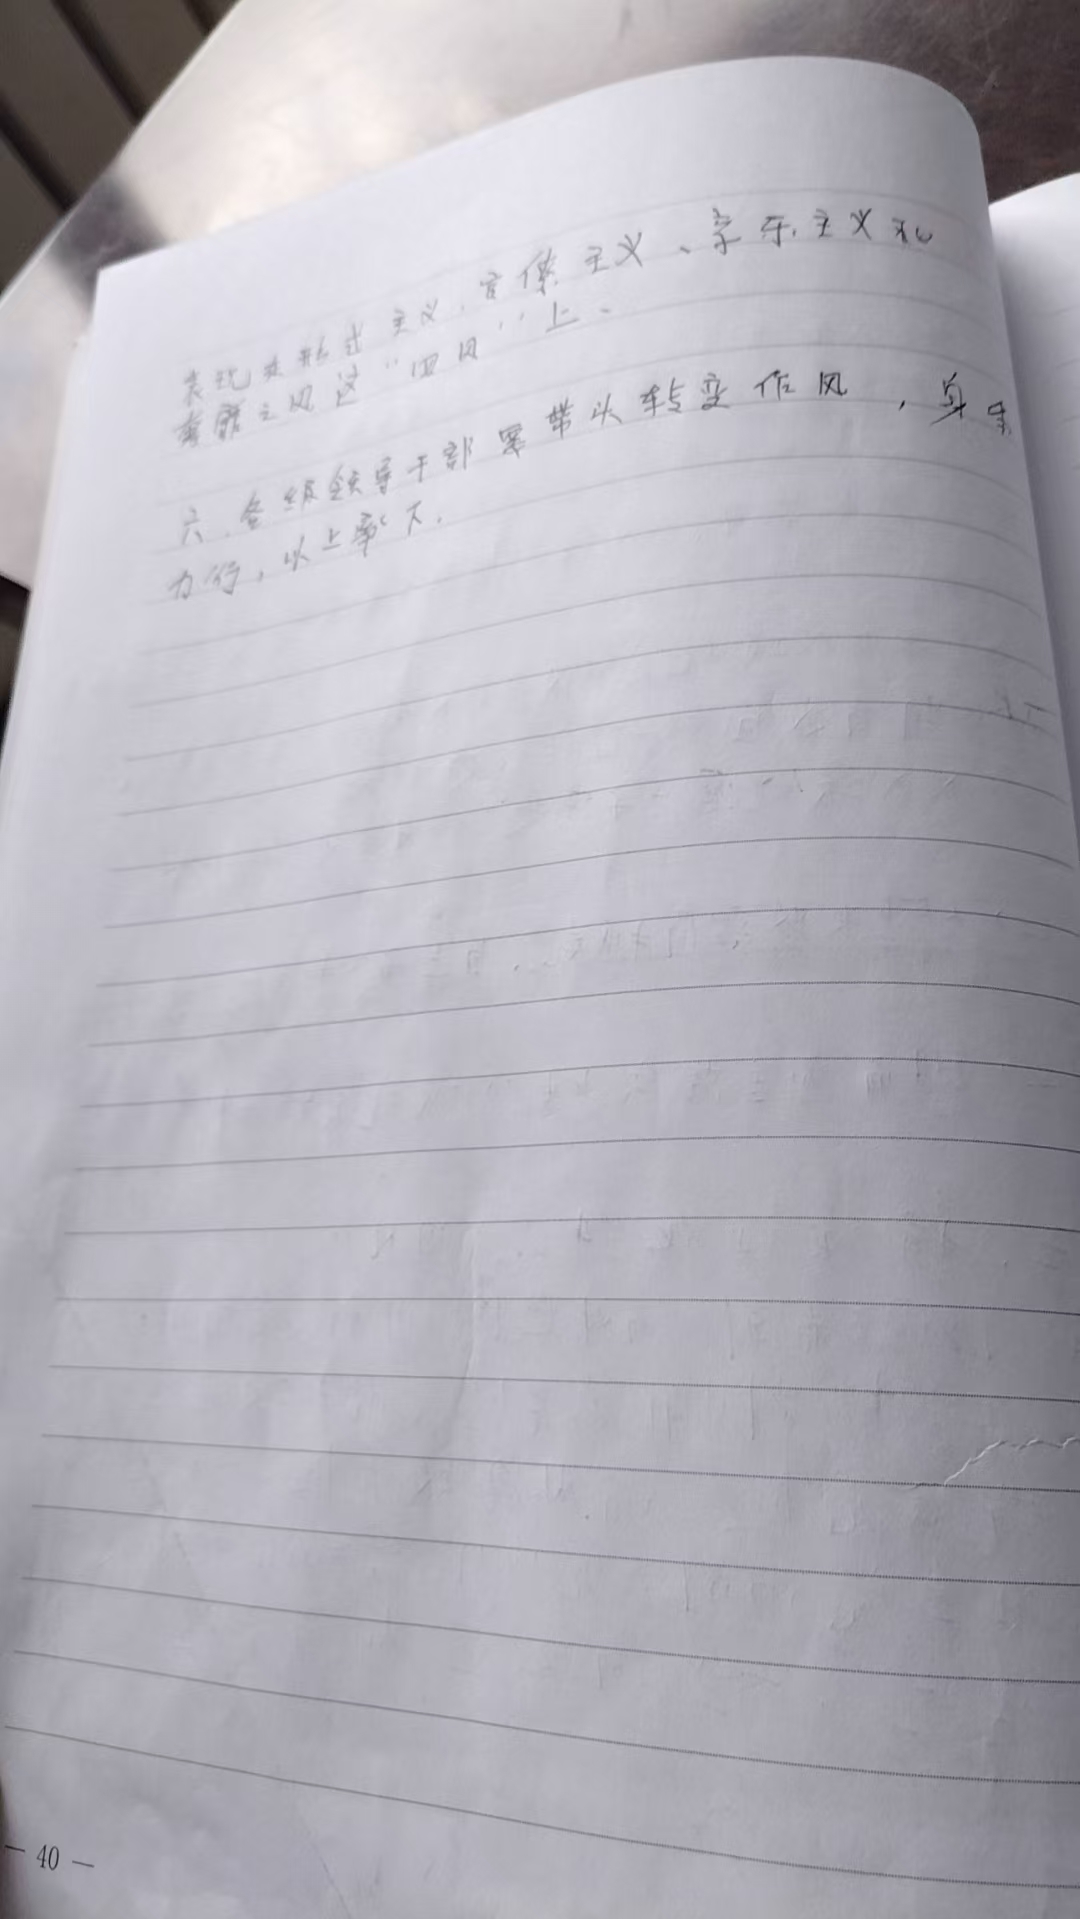 表现在形式主义、官僚主义、享乐主义和
奢靡之风这“四风”上、
六、各级领导干部要带头转变作风，身体
力行，以上率下.
— 40 —